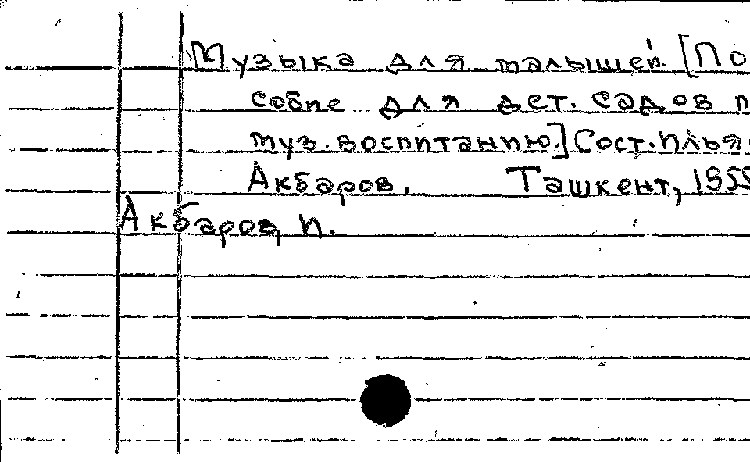 Музыка для малышей. [По
собие для дет. садов п
муз. воспитанию.] Сост. Илья
Акбаров. Ташкент, 195
Акбаров, И.